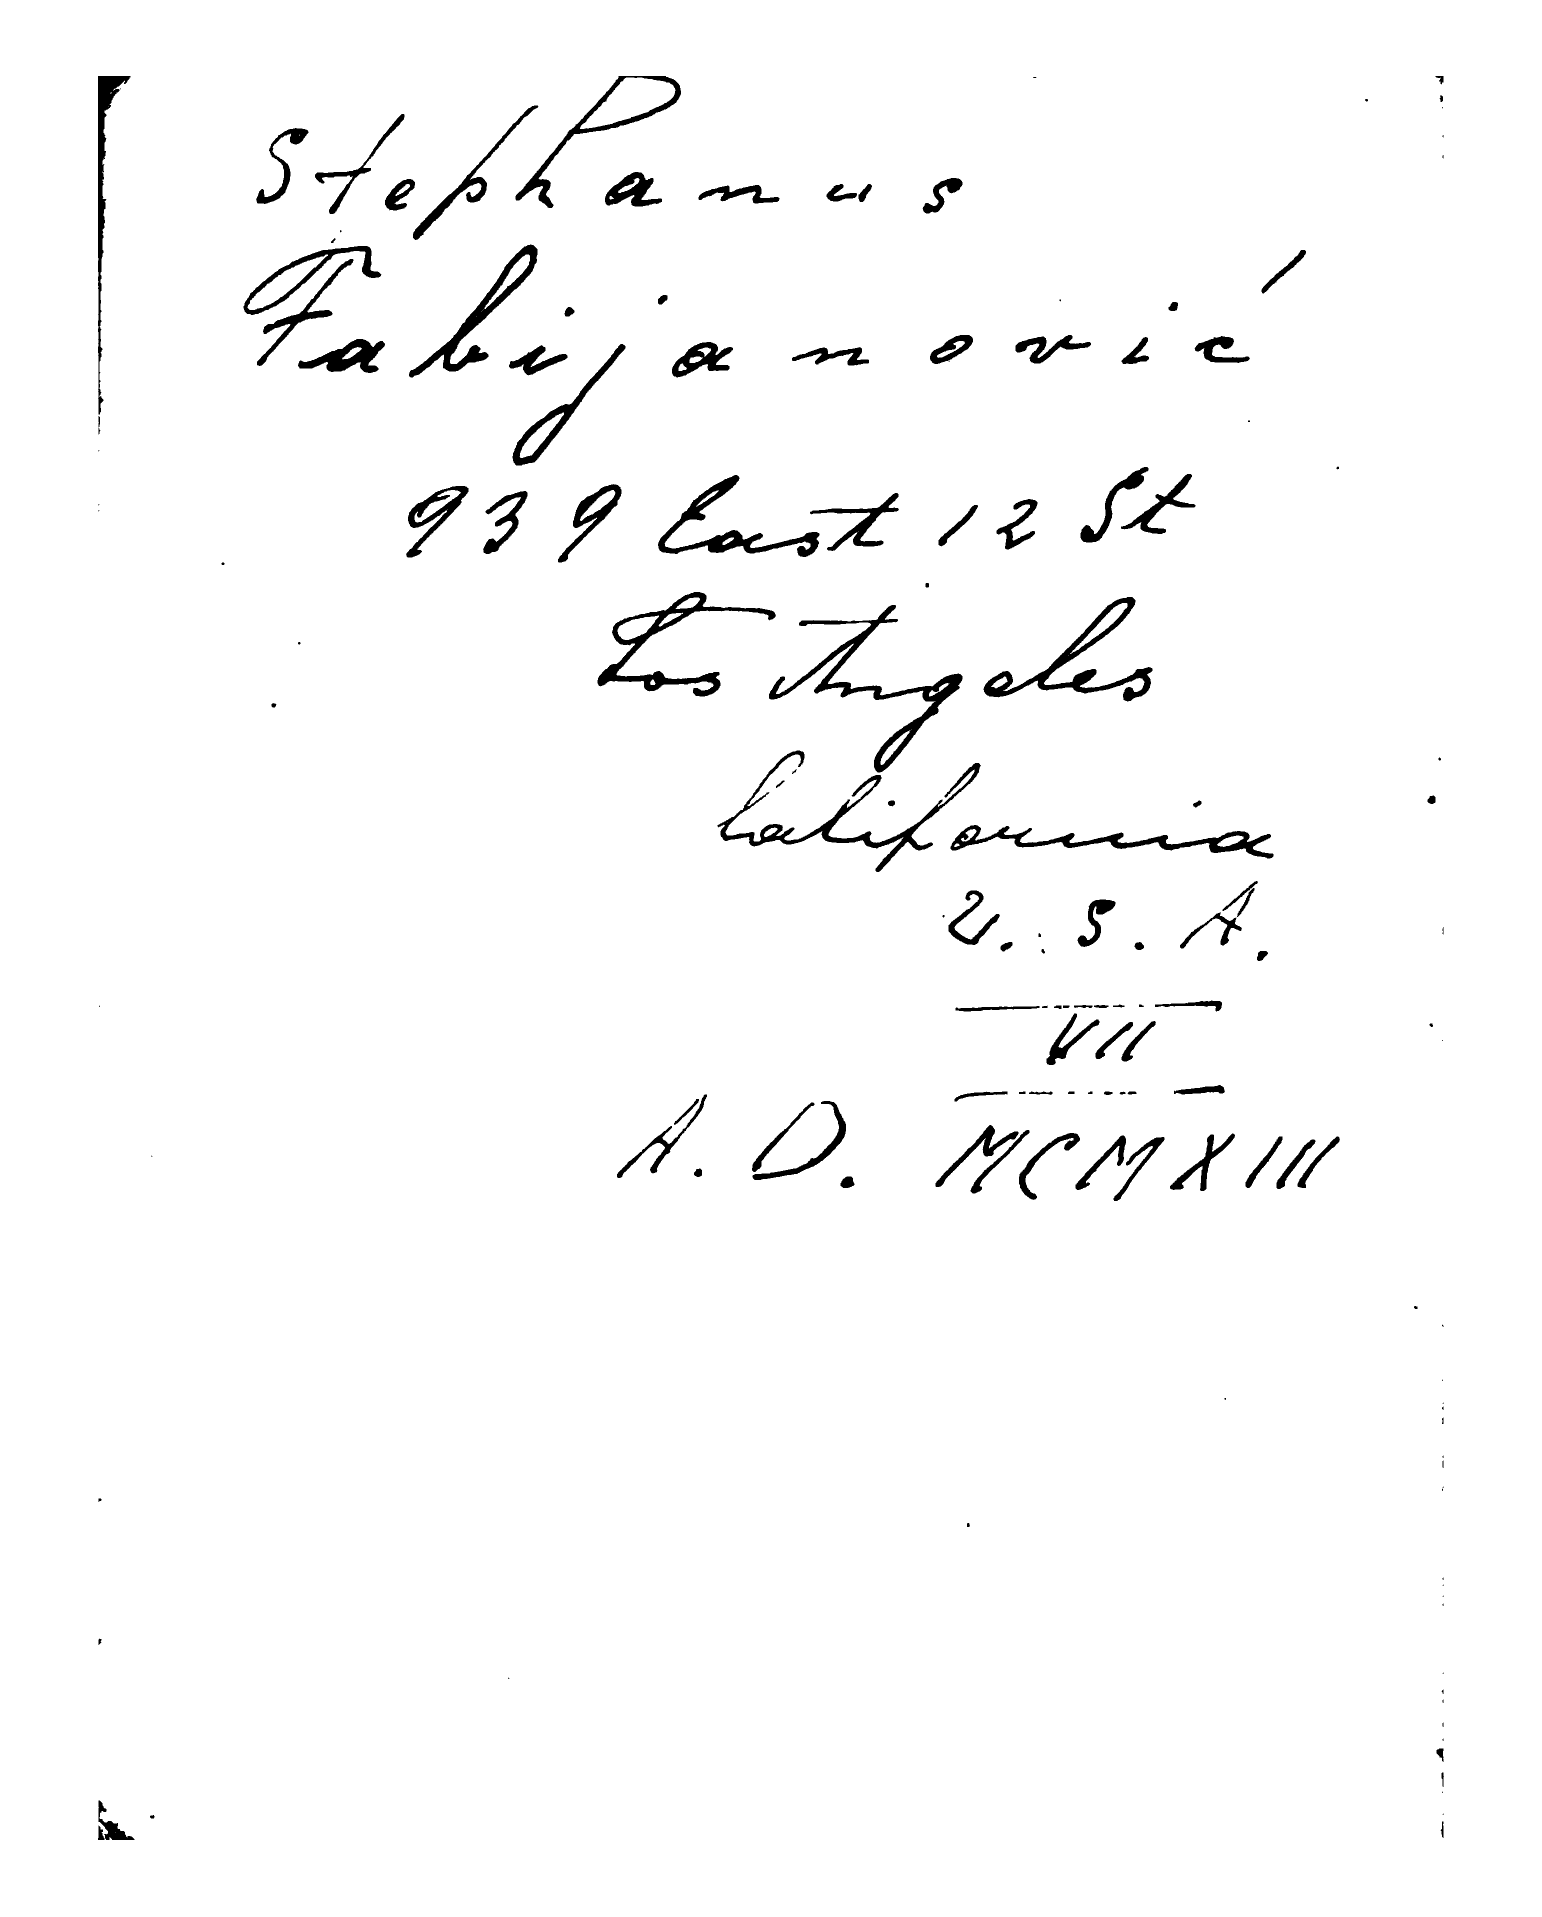 Stephanus
Fabijanović
939 East 12 St
Los Angeles
California
U. S. A.
VII
A. D. MCMXIII